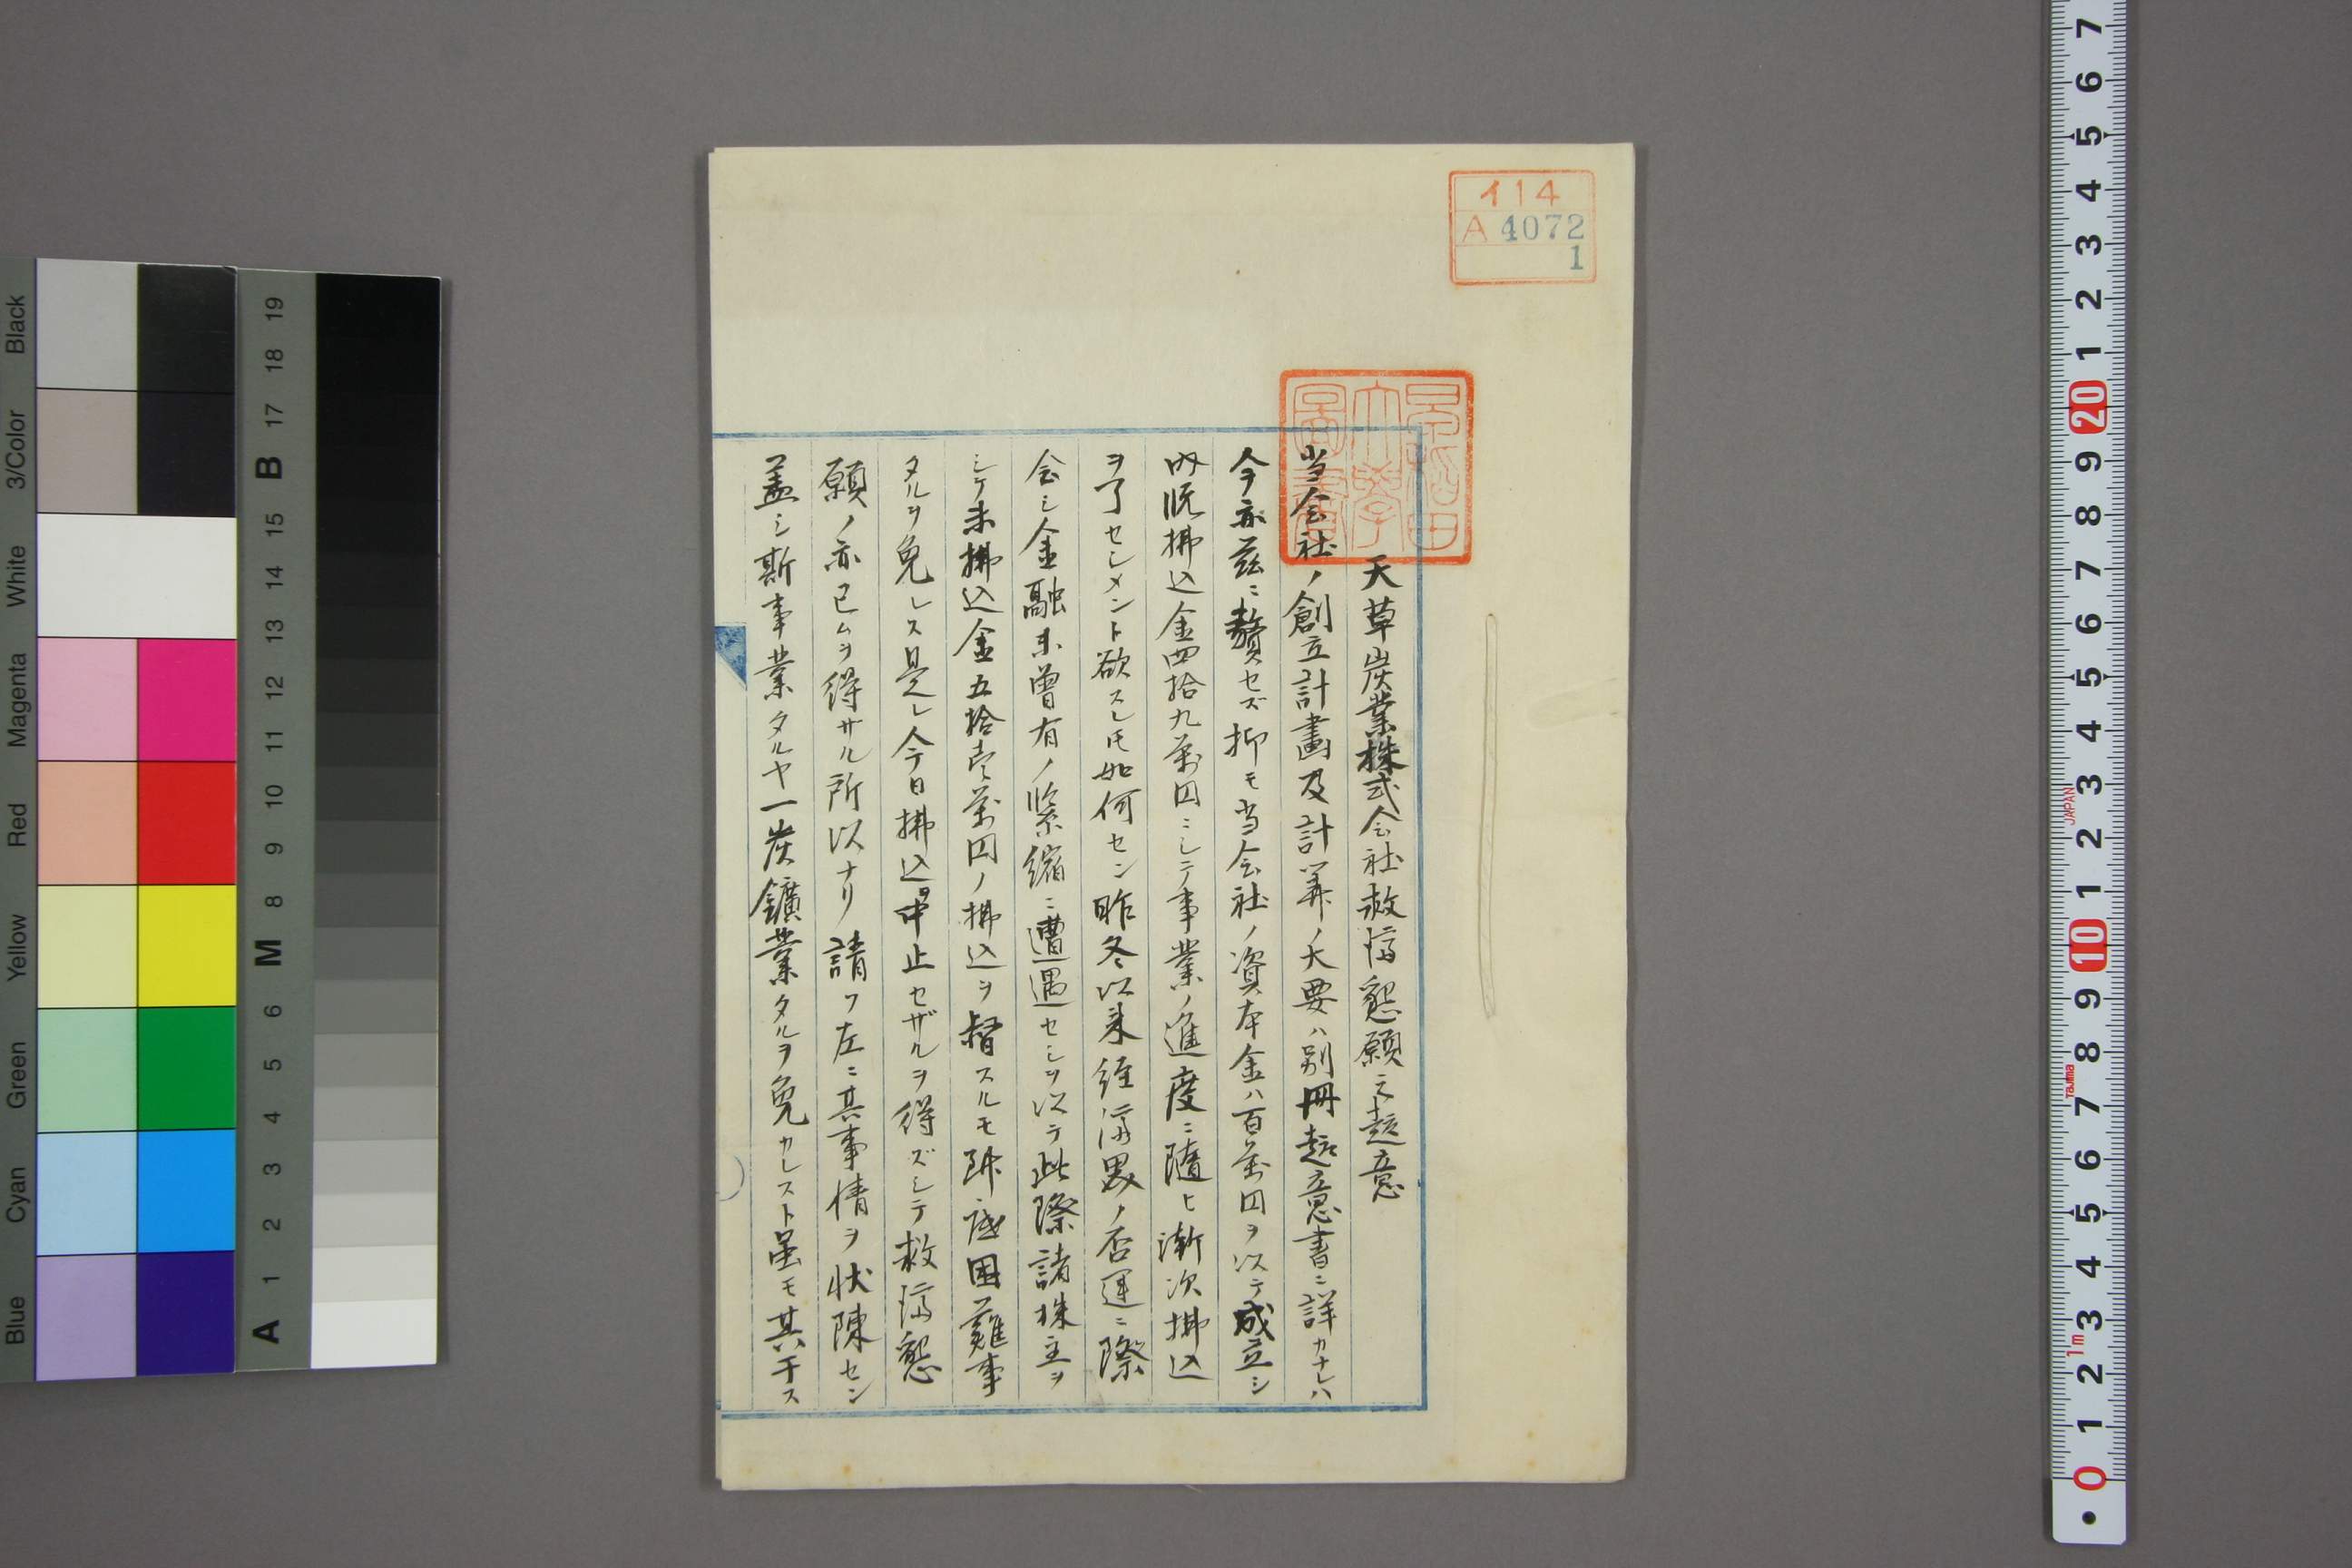 イ14
A 4072
1
早稲田
大學
圖書
天草炭業株式会社救済懇願之趣意
当会社ノ創立計畫及計算ノ大要ハ別冊趣意書ニ詳カナレハ
今亦茲ニ贅セズ抑モ当会社ノ資本金ハ百萬円ヲ以テ成立シ
内既拂込金四拾九萬円ニシテ事業ノ進度ニ随ヒ漸次拂込
ヲ了セシメント欲スレ𪜈如何セン昨冬以来経済界ノ否運ニ際
会シ金融未曽有ノ緊縮ニ遭遇セシヲ以テ此際諸株主ヲ
シテ未拂込金五拾壱萬円ノ拂込ヲ督スルモ到底困難事
タルヲ免レス是レ今日拂込ヲ中止セザルヲ得ズシテ救済懇
願ノ亦已ムヲ得ザル所以ナリ請フ左ニ其事情ヲ状陳セン
蓋シ斯事業タルヤ一炭鑛業タルヲ免カレスト虽モ其干ス
Black
3/Color
White
Magenta
Red
Yellow
Green
Cyan
Blue
19
18
17
B
15
14
13
12
11
10
9
8
M
6
5
4
3
2
1
A
7
6
5
4
3
2
1
20
9
8
7
6
5
4
3
JAPAN
2
1
10
9
8
Tajima
7
6
5
4
3
1m
2
1
0